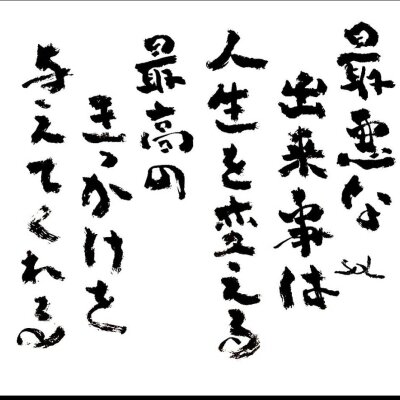 最悪な
出来事は
人生を変える
最高の
きっかけを
与えてくれる